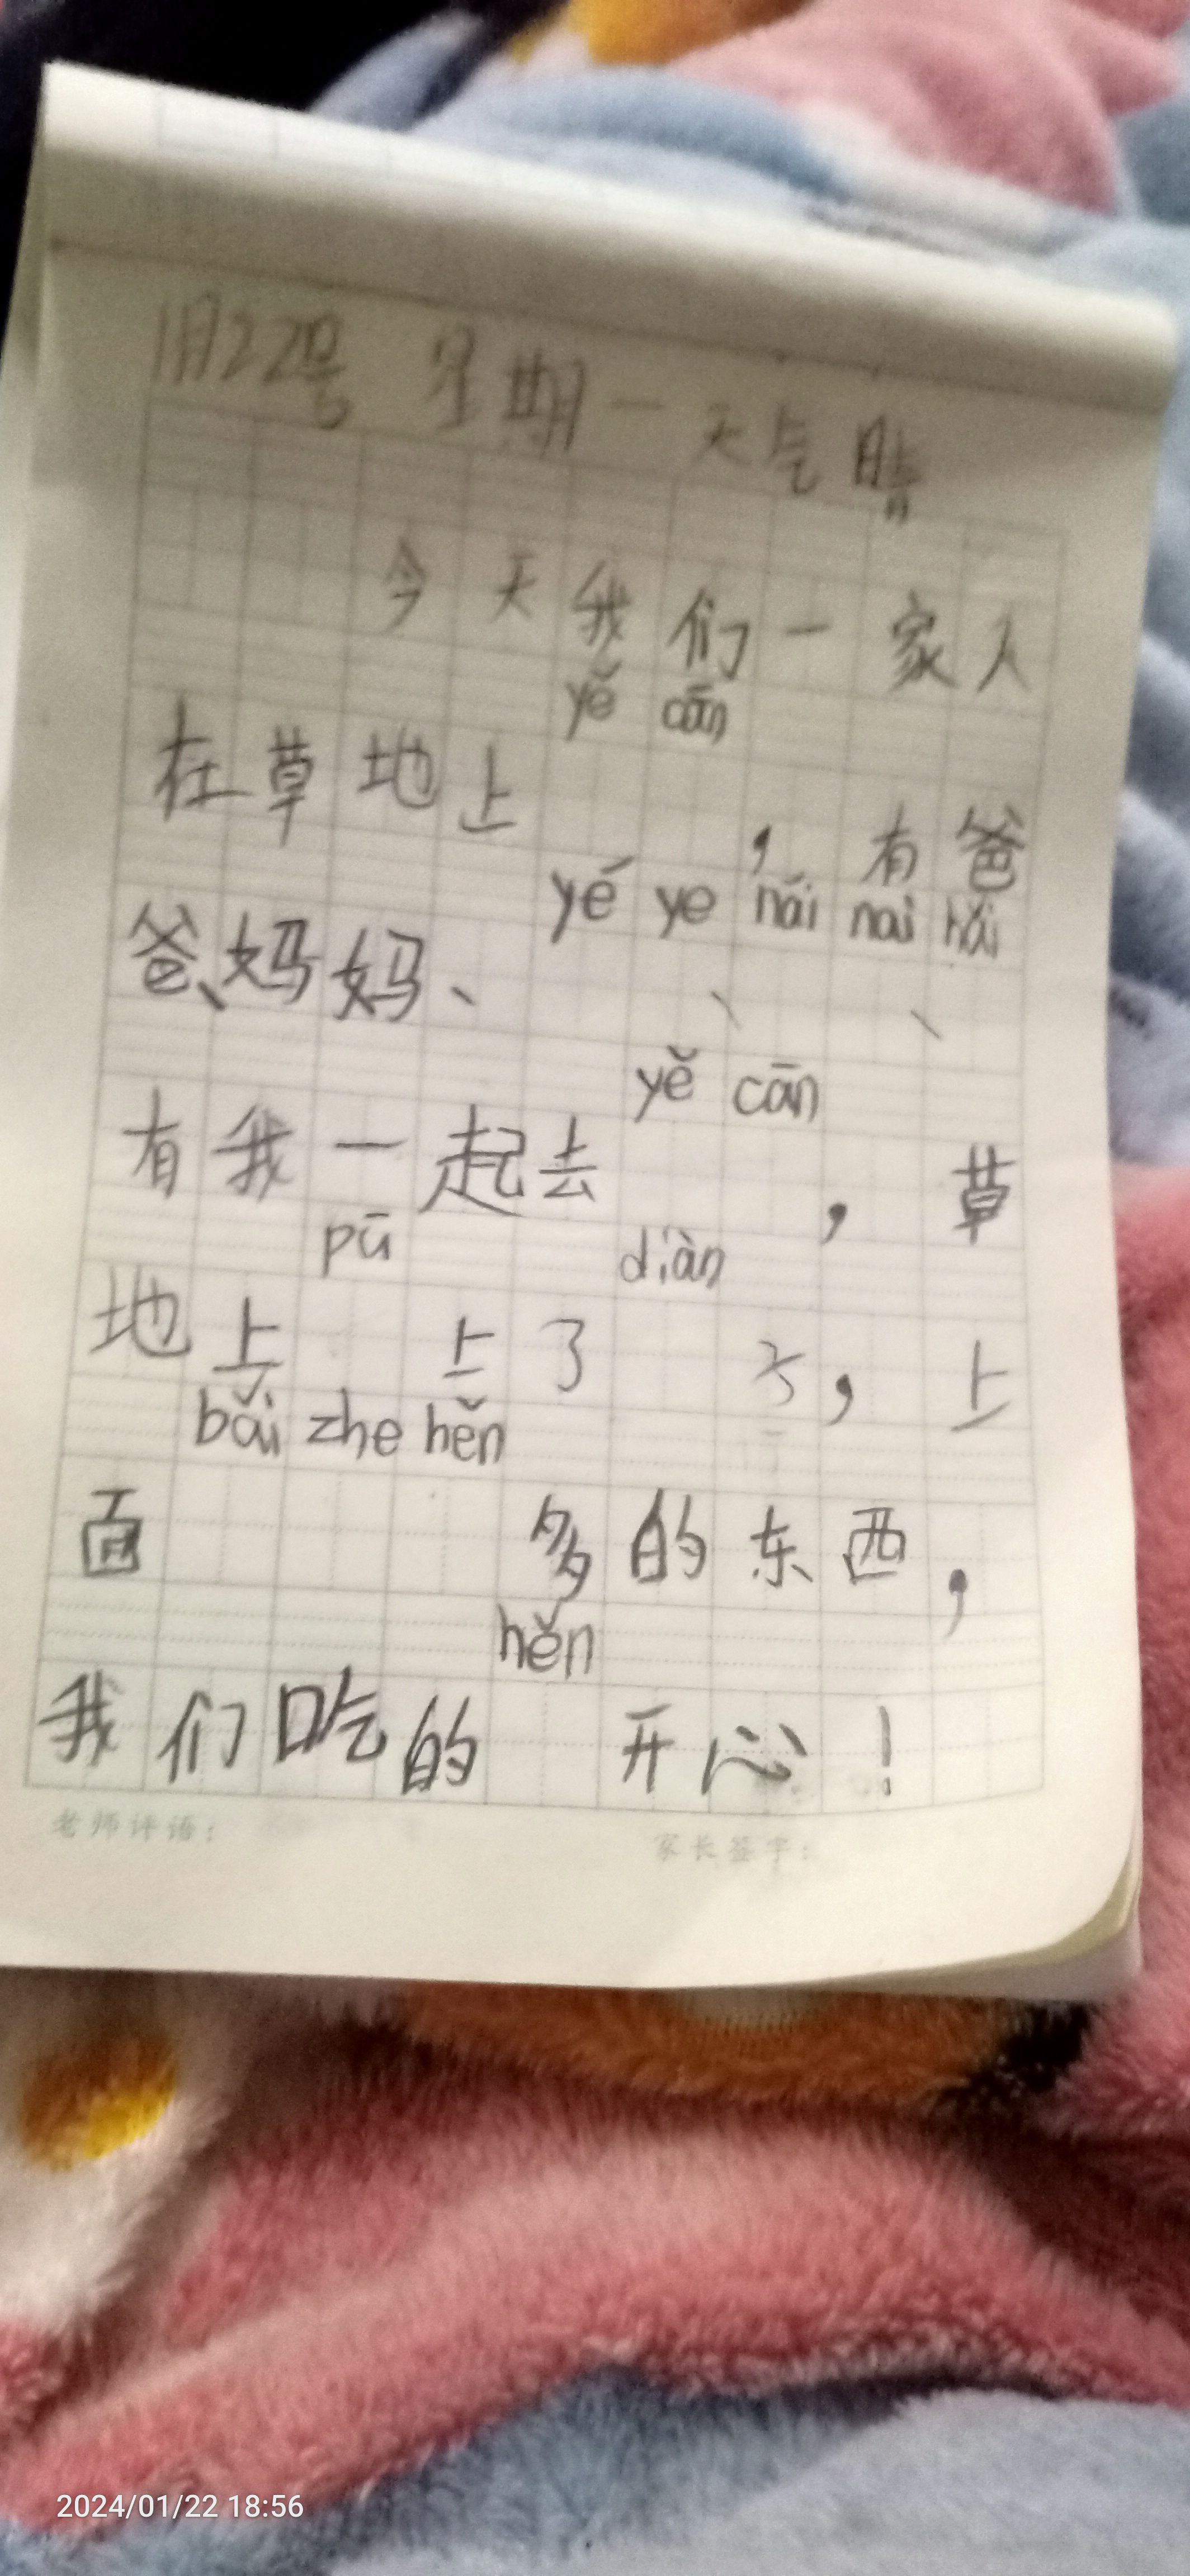 1月22号 星期一 天气晴
今天我们一家人
yě cān
在草地上 ，有爸
yé ye nǎi nai hái
爸、妈妈、 、 、
yě cān
有我一起去 ，草
pū diàn
地上 上了 子，上
bǎi zhe hěn
面 多的东西，
hěn
我们吃的 开心！
老师评语：
家长签字：
2024/01/22 18:56